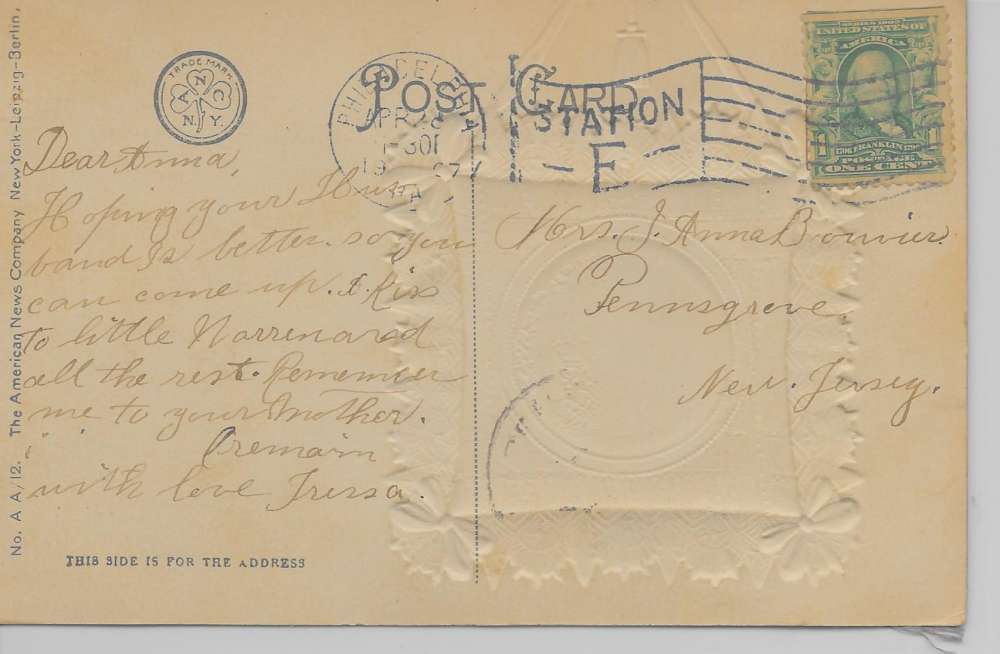 No. A A/12. The American News Company New York-Leipzig-Berlin,
TRADE MARK
A N C
N. Y.
POST CARD
PHILADELPHIA
APR 28
30
19 07
PA
STATION
E
SERIES 1902
UNITED STATES OF
AMERICA
1706 FRANKLIN 1790
POSTAGE
1 ONE CENT 1
Dear Anna,
Hoping your Hus
band Is better. so you
can come up. A Kiss
to little Norren and
all the rest. Remember
me to your Mother.
I remain
with love Tressa.
Mrs. J. Anna Bouvier
Pennsgrove
New. Jersey.
THIS SIDE IS FOR THE ADDRESS